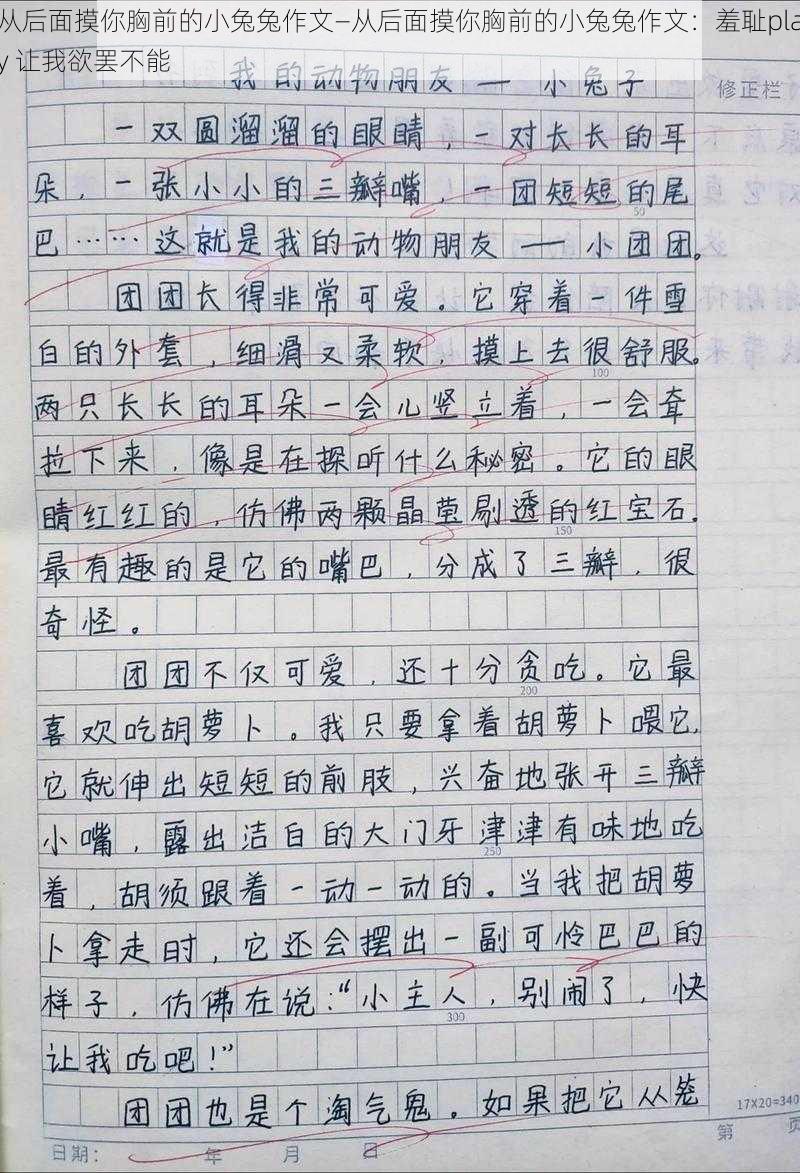 从后面摸你胸前的小兔兔作文—从后面摸你胸前的小兔兔作文：羞耻pla
y 让我欲罢不能
我的动物朋友——小兔子
修正栏
一双圆溜溜的眼睛，一对长长的耳
朵，一张小小的三瓣嘴，一团短短的尾
50
巴……这就是我的动物朋友——小团团。
团团长得非常可爱。它穿着一件雪
白的外套，细滑又柔软，摸上去很舒服。
100
两只长长的耳朵一会儿竖立着，一会耷
拉下来，像是在探听什么秘密。它的眼
睛红红的，仿佛两颗晶莹剔透的红宝石。
150
最有趣的是它的嘴巴，分成了三瓣，很
奇怪。
团团不仅可爱，还十分贪吃。它最
200
喜欢吃胡萝卜。我只要拿着胡萝卜喂它，
它就伸出短短的前肢，兴奋地张开三瓣
小嘴，露出洁白的大门牙津津有味地吃
250
着，胡须跟着一动一动的。当我把胡萝
卜拿走时，它还会摆出一副可怜巴巴的
样子，仿佛在说：“小主人，别闹了，快
300
让我吃吧！”
团团也是个淘气鬼。如果把它从笼
17X20=340
日期： 年 月 日
第 页